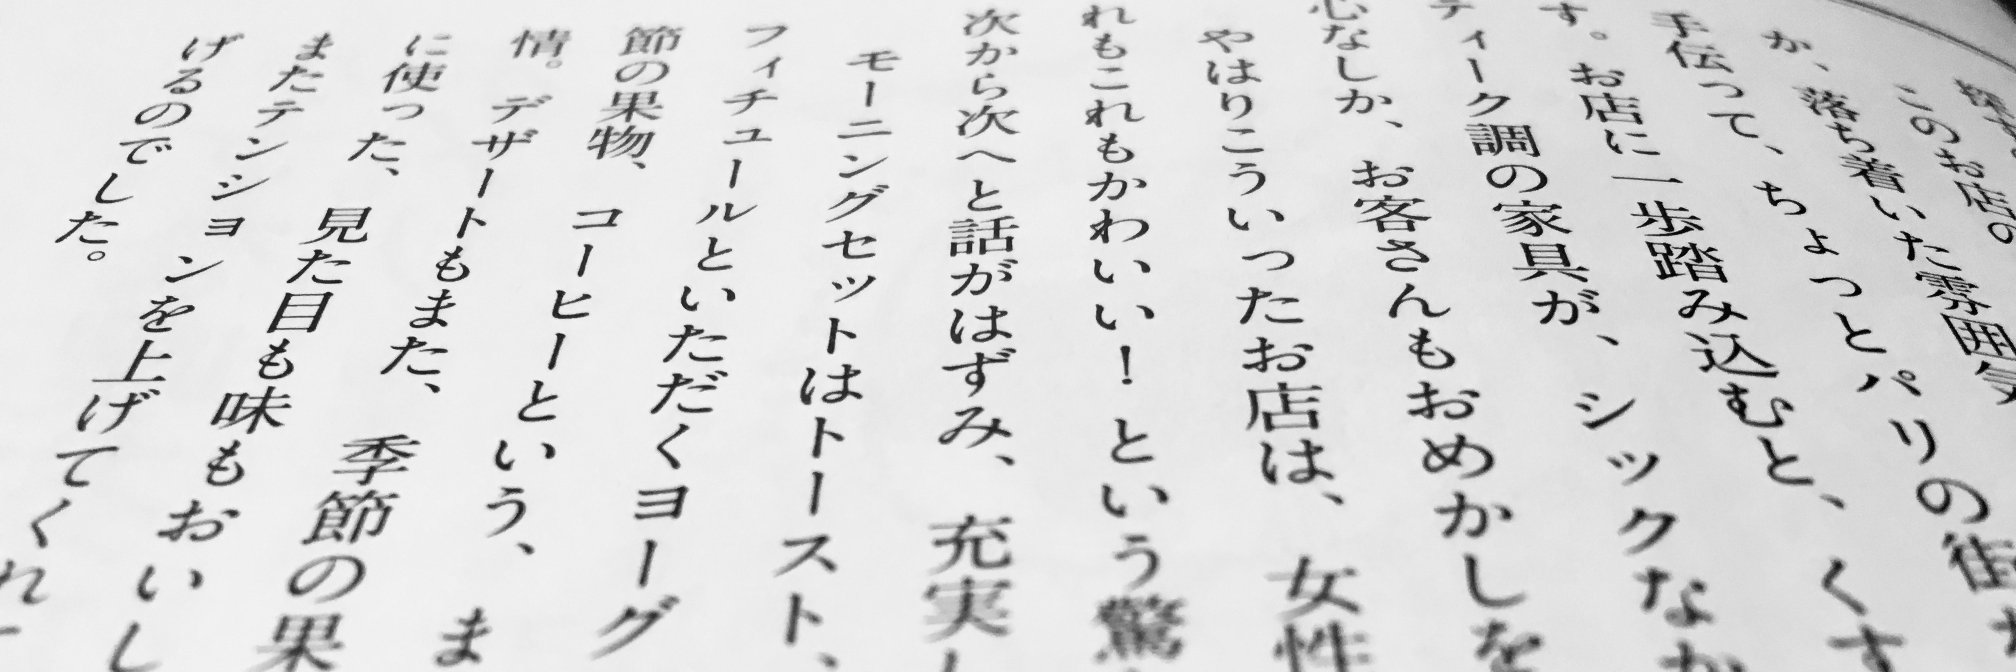 このお店の
か、落ち着いた雰囲気
手伝って、ちょっとパリの街
す。お店に一歩踏み込むと、くす
ティーク調の家具が、シックなか
心なしか、お客さんもおめかしを
やはりこういったお店は、女性
れもこれもかわいい！という驚
次から次へと話がはずみ、充実し
モーニングセットはトースト、
フィチュールといただくヨーグ
節の果物、コーヒーという、ま
情。デザートもまた、季節の果
に使った、見た目も味もおいし
またテンションを上げてくれ
げるのでした。